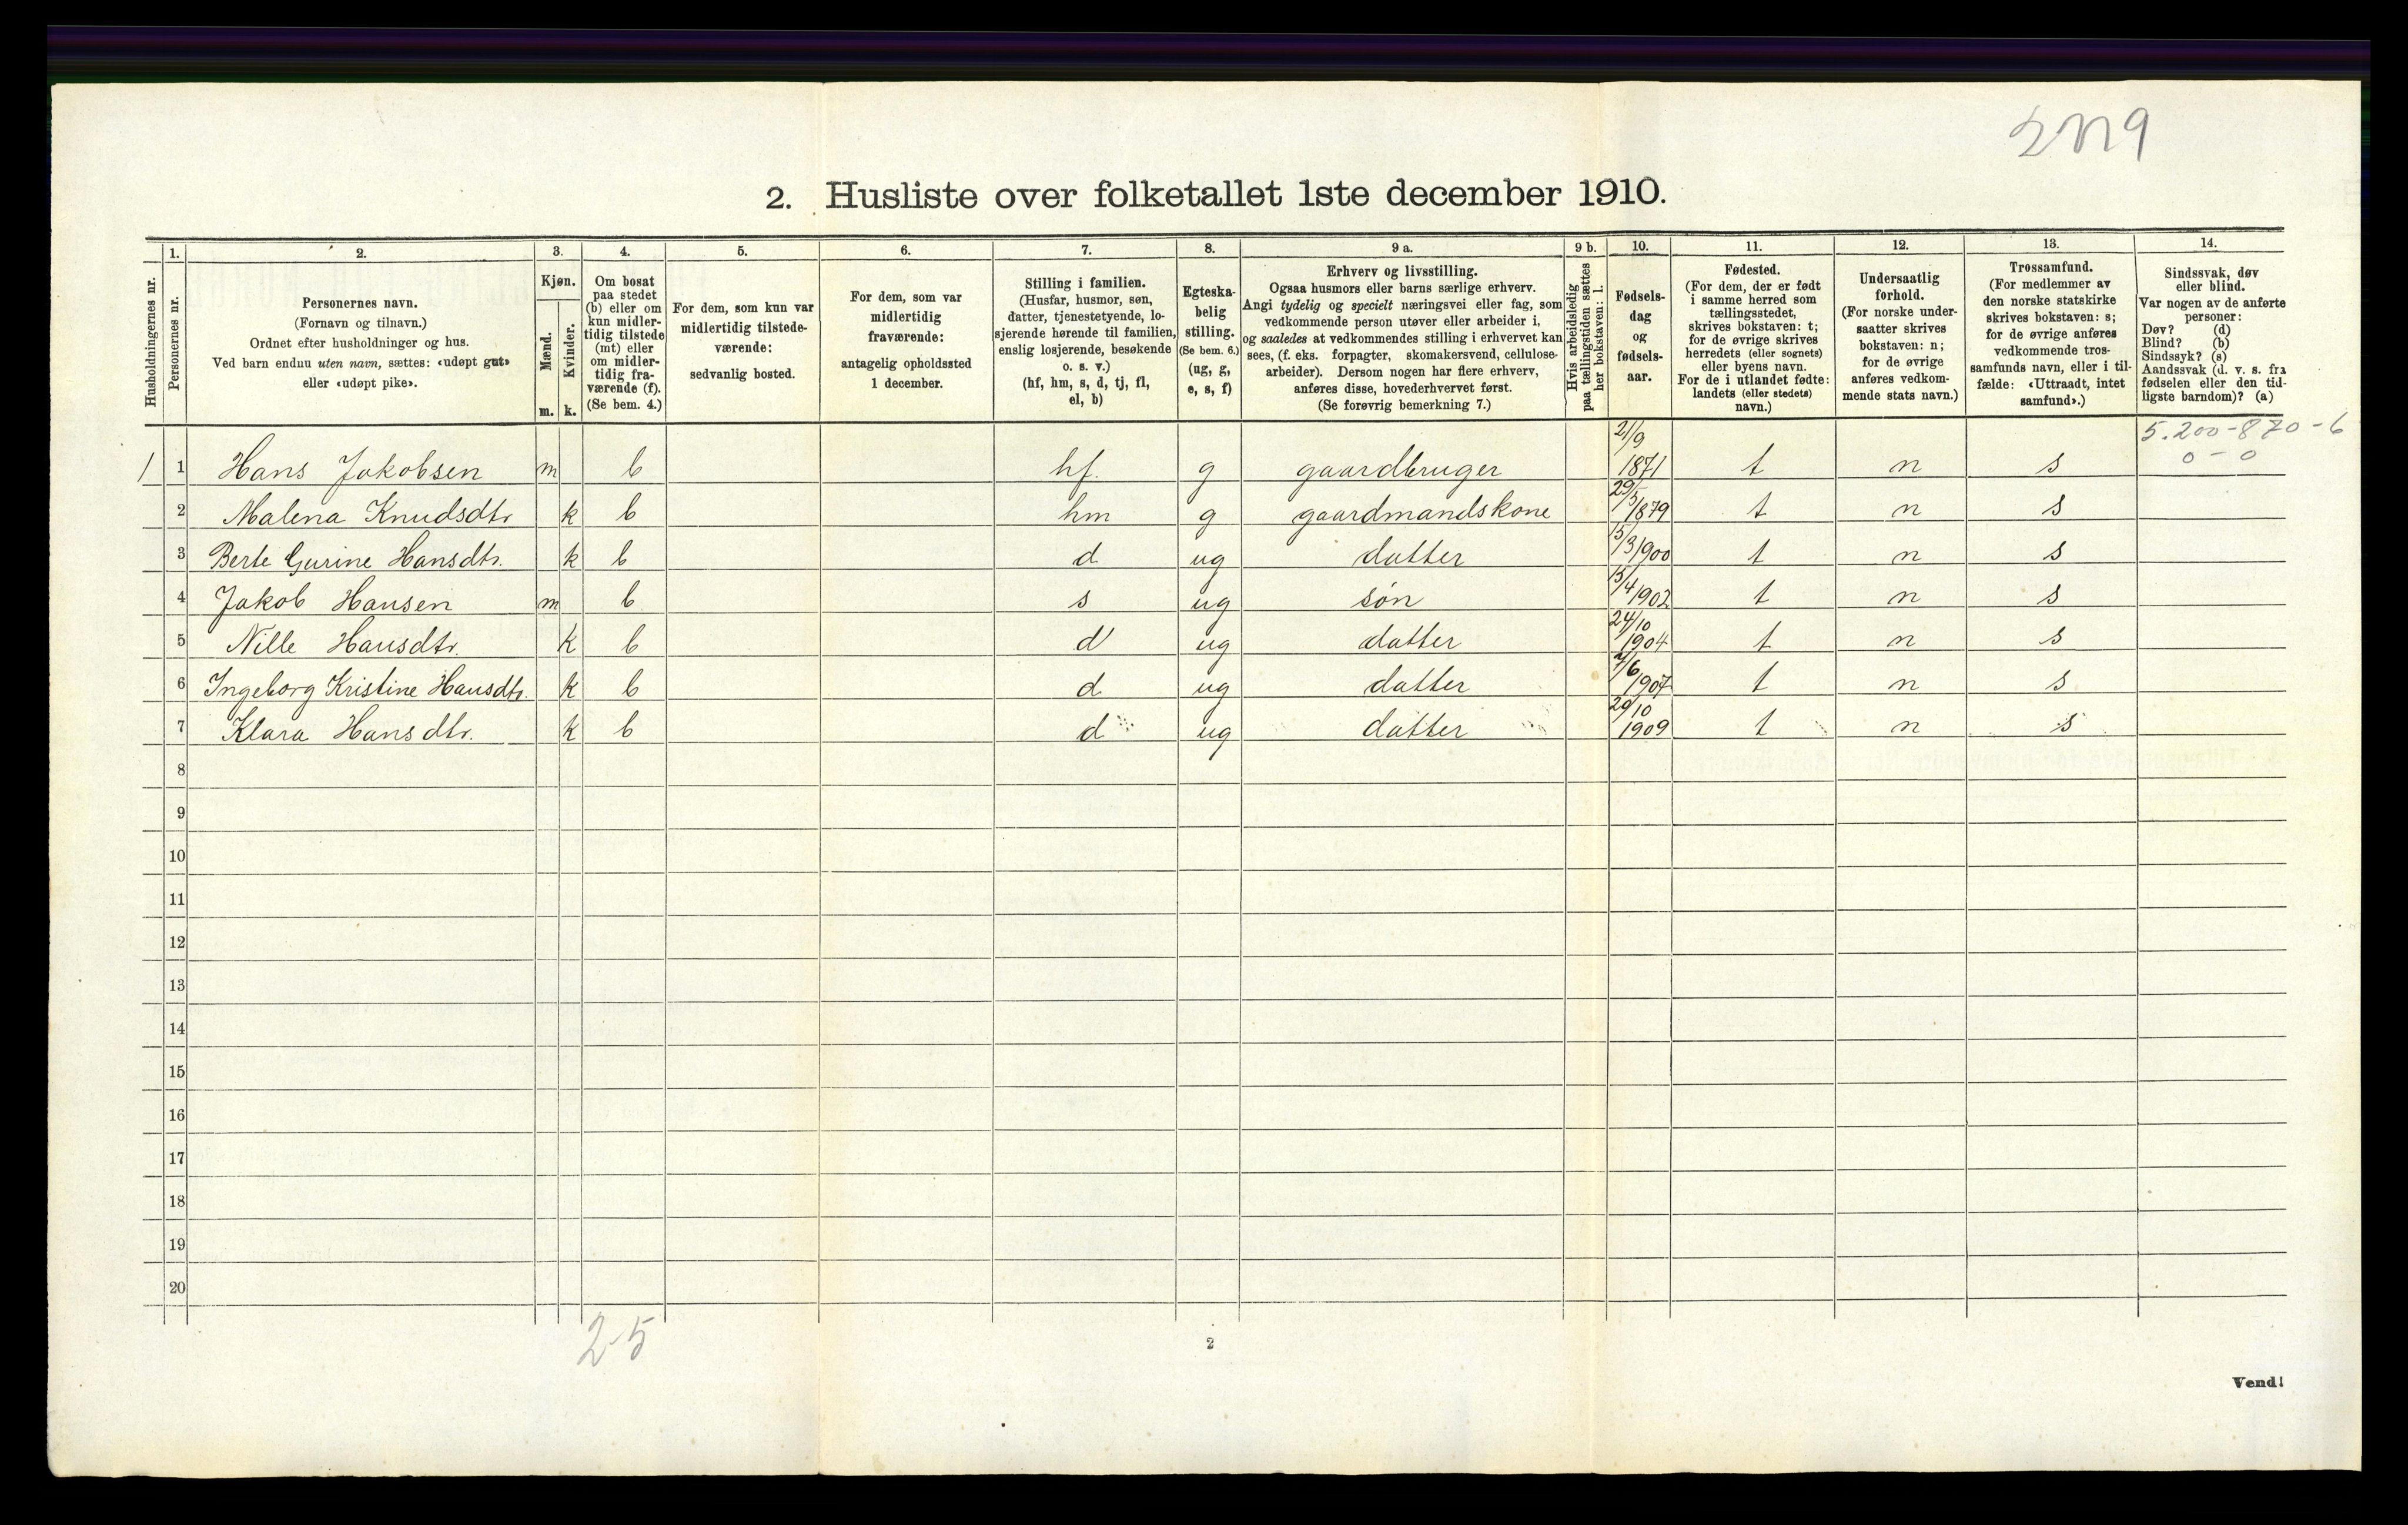 2. Husliste over folketallet 1ste december 1910.
Husholdningernes nr.
1.
Personernes nr.
2.
Personernes navn.
(Fornavn og tilnavn.)
Ordnet efter husholdninger og hus.
Ved barn endnu uten navn, sættes: «udøpt gut»
eller «udøpt pike».
3.
Kjøn.
Mænd.
m.
Kvinder.
k.
4.
Om bosat
paa stedet
(b) eller om
kun midler-
tidig tilstede
(mt) eller
om midler-
tidig fra-
værende (f).
(Se bem. 4.)
5.
For dem, som kun var
midlertidig tilstede-
værende:
sedvanlig bosted.
6.
For dem, som var
midlertidig
fraværende:
antagelig opholdssted
1 december.
7.
Stilling i familien.
(Husfar, husmor, søn,
datter, tjenestetyende, lo-
sjerende hørende til familien,
enslig losjerende, besøkende
o. s. v.)
(hf, hm, s, d, tj, fl,
el, b)
8.
Egteska-
belig
stilling.
(Se bem. 6.)
(ug, g,
e, s, f)
9 a.
Erhverv og livsstilling.
Ogsaa husmors eller barns særlige erhverv.
Angi tydelig og specielt næringsvei eller fag, som
vedkommende person utøver eller arbeider i,
og saaledes at vedkommendes stilling i erhvervet kan
sees, (f. eks. forpagter, skomakersvend, cellulose-
arbeider). Dersom nogen har flere erhverv,
anføres disse, hovederhvervet først.
(Se forøvrig bemerkning 7.)
9 b.
Hvis arbeidsledig
paa tællingstiden sættes
her bokstaven: l.
10.
Fødsels-
dag
og
fødsels-
aar.
11.
Fødested.
(For dem, der er født
i samme herred som
tællingsstedet,
skrives bokstaven: t;
for de øvrige skrives
herredets (eller sognets)
eller byens navn.
For de i utlandet fødte:
landets (eller stedets)
navn.)
12.
Undersaatlig
forhold.
(For norske under-
saatter skrives
bokstaven: n;
for de øvrige
anføres vedkom-
mende stats navn.)
13.
Trossamfund.
(For medlemmer av
den norske statskirke
skrives bokstaven: s;
for de øvrige anføres
vedkommende tros-
samfunds navn, eller i til-
fælde: «Uttraadt, intet
samfund».)
14.
Sindssvak, døv
eller blind.
Var nogen av de anførte
personer:
Døv? (d)
Blind? (b)
Sindssyk? (s)
Aandssvak (d. v. s. fra
fødselen eller den tid-
ligste barndom)? (a)
5.200-870-6
0-0
1 1 Hans Jakobsen m b hf. g gaardbruger 21/9 1871 t n s
2 Malena Knudsdtr k b hm g gaardmandskone 29/5 1879 t n s
3 Berte Gurine Hansdtr. k b d ug datter 15/3 1900 t n s
4 Jakob Hansen m b s ug søn 15/4 1902 t n s
5 Nille Hansdtr. k b d ug datter 24/10 1904 t n s
6 Ingeborg Kristine Hansdtr. k b d ug datter 7/6 1907 t n s
7 Klara Hansdtr. k b d ug datter 29/10 1909 t n s
8
9
10
11
12
13
14
15
16
17
18
19
20
2-5
2
Vend!